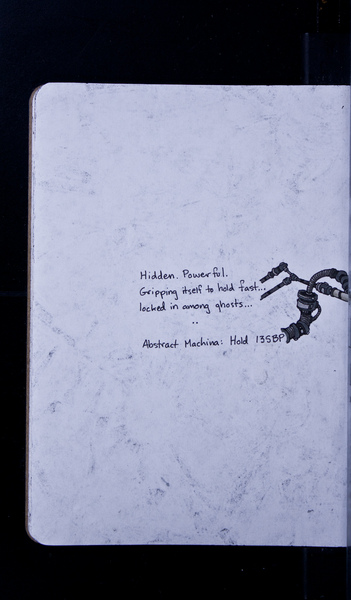 Hidden. Powerful.
Gripping itself to hold fast...
locked in among ghosts...
..
Abstract Machina: Hold 135BP